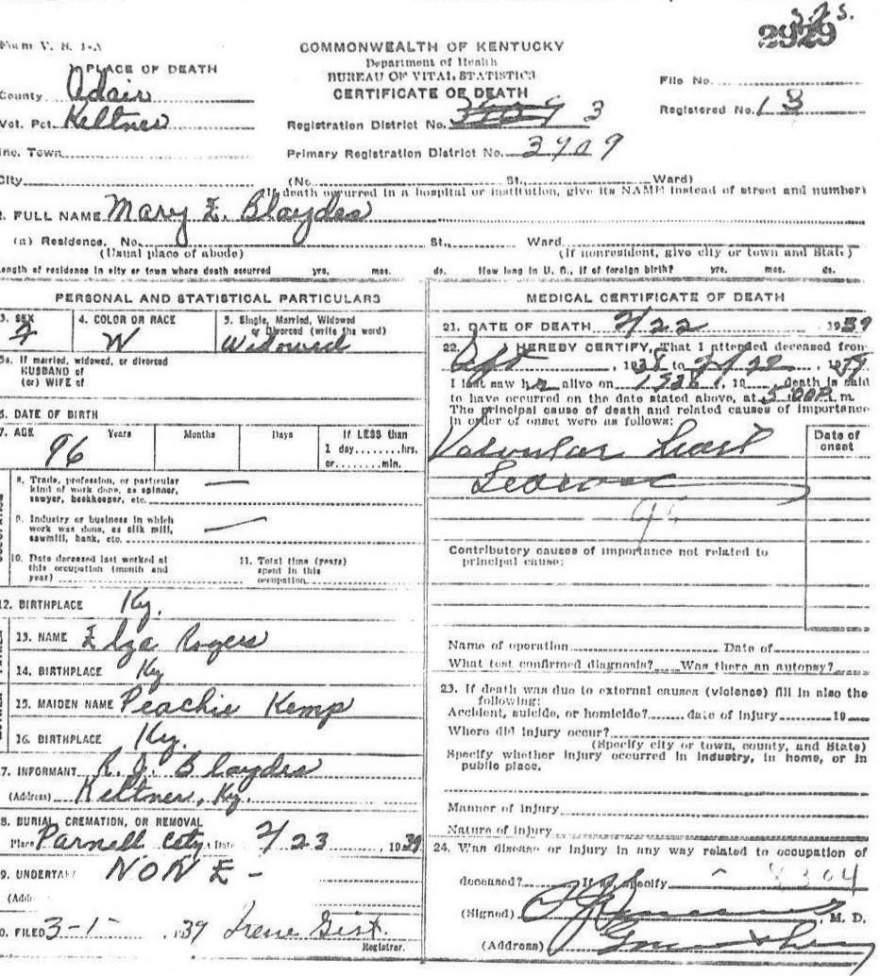 Form V. S. 1-A
COMMONWEALTH OF KENTUCKY
Department of Health
BUREAU OF VITAL STATISTICS
CERTIFICATE OF DEATH
PLACE OF DEATH
County Adair
Vot. Pct. Keltner
Inc. Town
City
File No.
Registered No. 13
Registration District No. 3
Primary Registration District No. 3909
(No. St., Ward)
If death occurred in a hospital or institution, give its NAME instead of street and number)
2. FULL NAME Mary E. Blaydes
(a) Residence, No. St., Ward
(Usual place of abode) (If nonresident, give city or town and State)
Length of residence in city or town where death occurred yrs. mos. ds. How long in U. S., if of foreign birth? yrs. mos. ds.
PERSONAL AND STATISTICAL PARTICULARS
3. SEX
F
4. COLOR OR RACE
W
5. Single, Married, Widowed
or Divorced (write the word)
Widowed
5a. If married, widowed, or divorced
HUSBAND of
(or) WIFE of
6. DATE OF BIRTH
7. AGE Years Months Days If LESS than
96
1 day........hrs.
or........min.
8. Trade, profession, or particular
kind of work done, as spinner,
sawyer, bookkeeper, etc.
9. Industry or business in which
work was done, as silk mill,
sawmill, bank, etc.
10. Date deceased last worked at
this occupation (month and
year)
11. Total time (years)
spent in this
occupation
12. BIRTHPLACE Ky.
13. NAME Elza Rogers
14. BIRTHPLACE Ky
15. MAIDEN NAME Peachie Kemp
16. BIRTHPLACE Ky.
17. INFORMANT R. J. Blaydes
(Address) Keltner, Ky.
18. BURIAL, CREMATION, OR REMOVAL
Place Parnell Cety. Date 2/23, 1939
19. UNDERTAKER NONE -
(Addr
20. FILED 3-1-, 39 Irene Gist.
Registrar.
MEDICAL CERTIFICATE OF DEATH
21. DATE OF DEATH 2/22 1939
22. I HEREBY CERTIFY, That I attended deceased from
Sept, 1938 to 2/22, 1939
I last saw her alive on 1938, 19 death is said
to have occurred on the date stated above, at 5:00 P. m.
The principal cause of death and related causes of importance
in order of onset were as follows:
Date of
onset
Valvular heart
Contributory causes of importance not related to
principal cause:
Name of operation Date of
What test confirmed diagnosis? Was there an autopsy?
23. If death was due to external causes (violence) fill in also the
following:
Accident, suicide, or homicide? date of injury 19
Where did injury occur?
(Specify city or town, county, and State)
Specify whether injury occurred in industry, in home, or in
public place.
Manner of injury
Nature of injury
24. Was disease or injury in any way related to occupation of
deceased? If so, specify 8304
(Signed) M. D.
(Address)